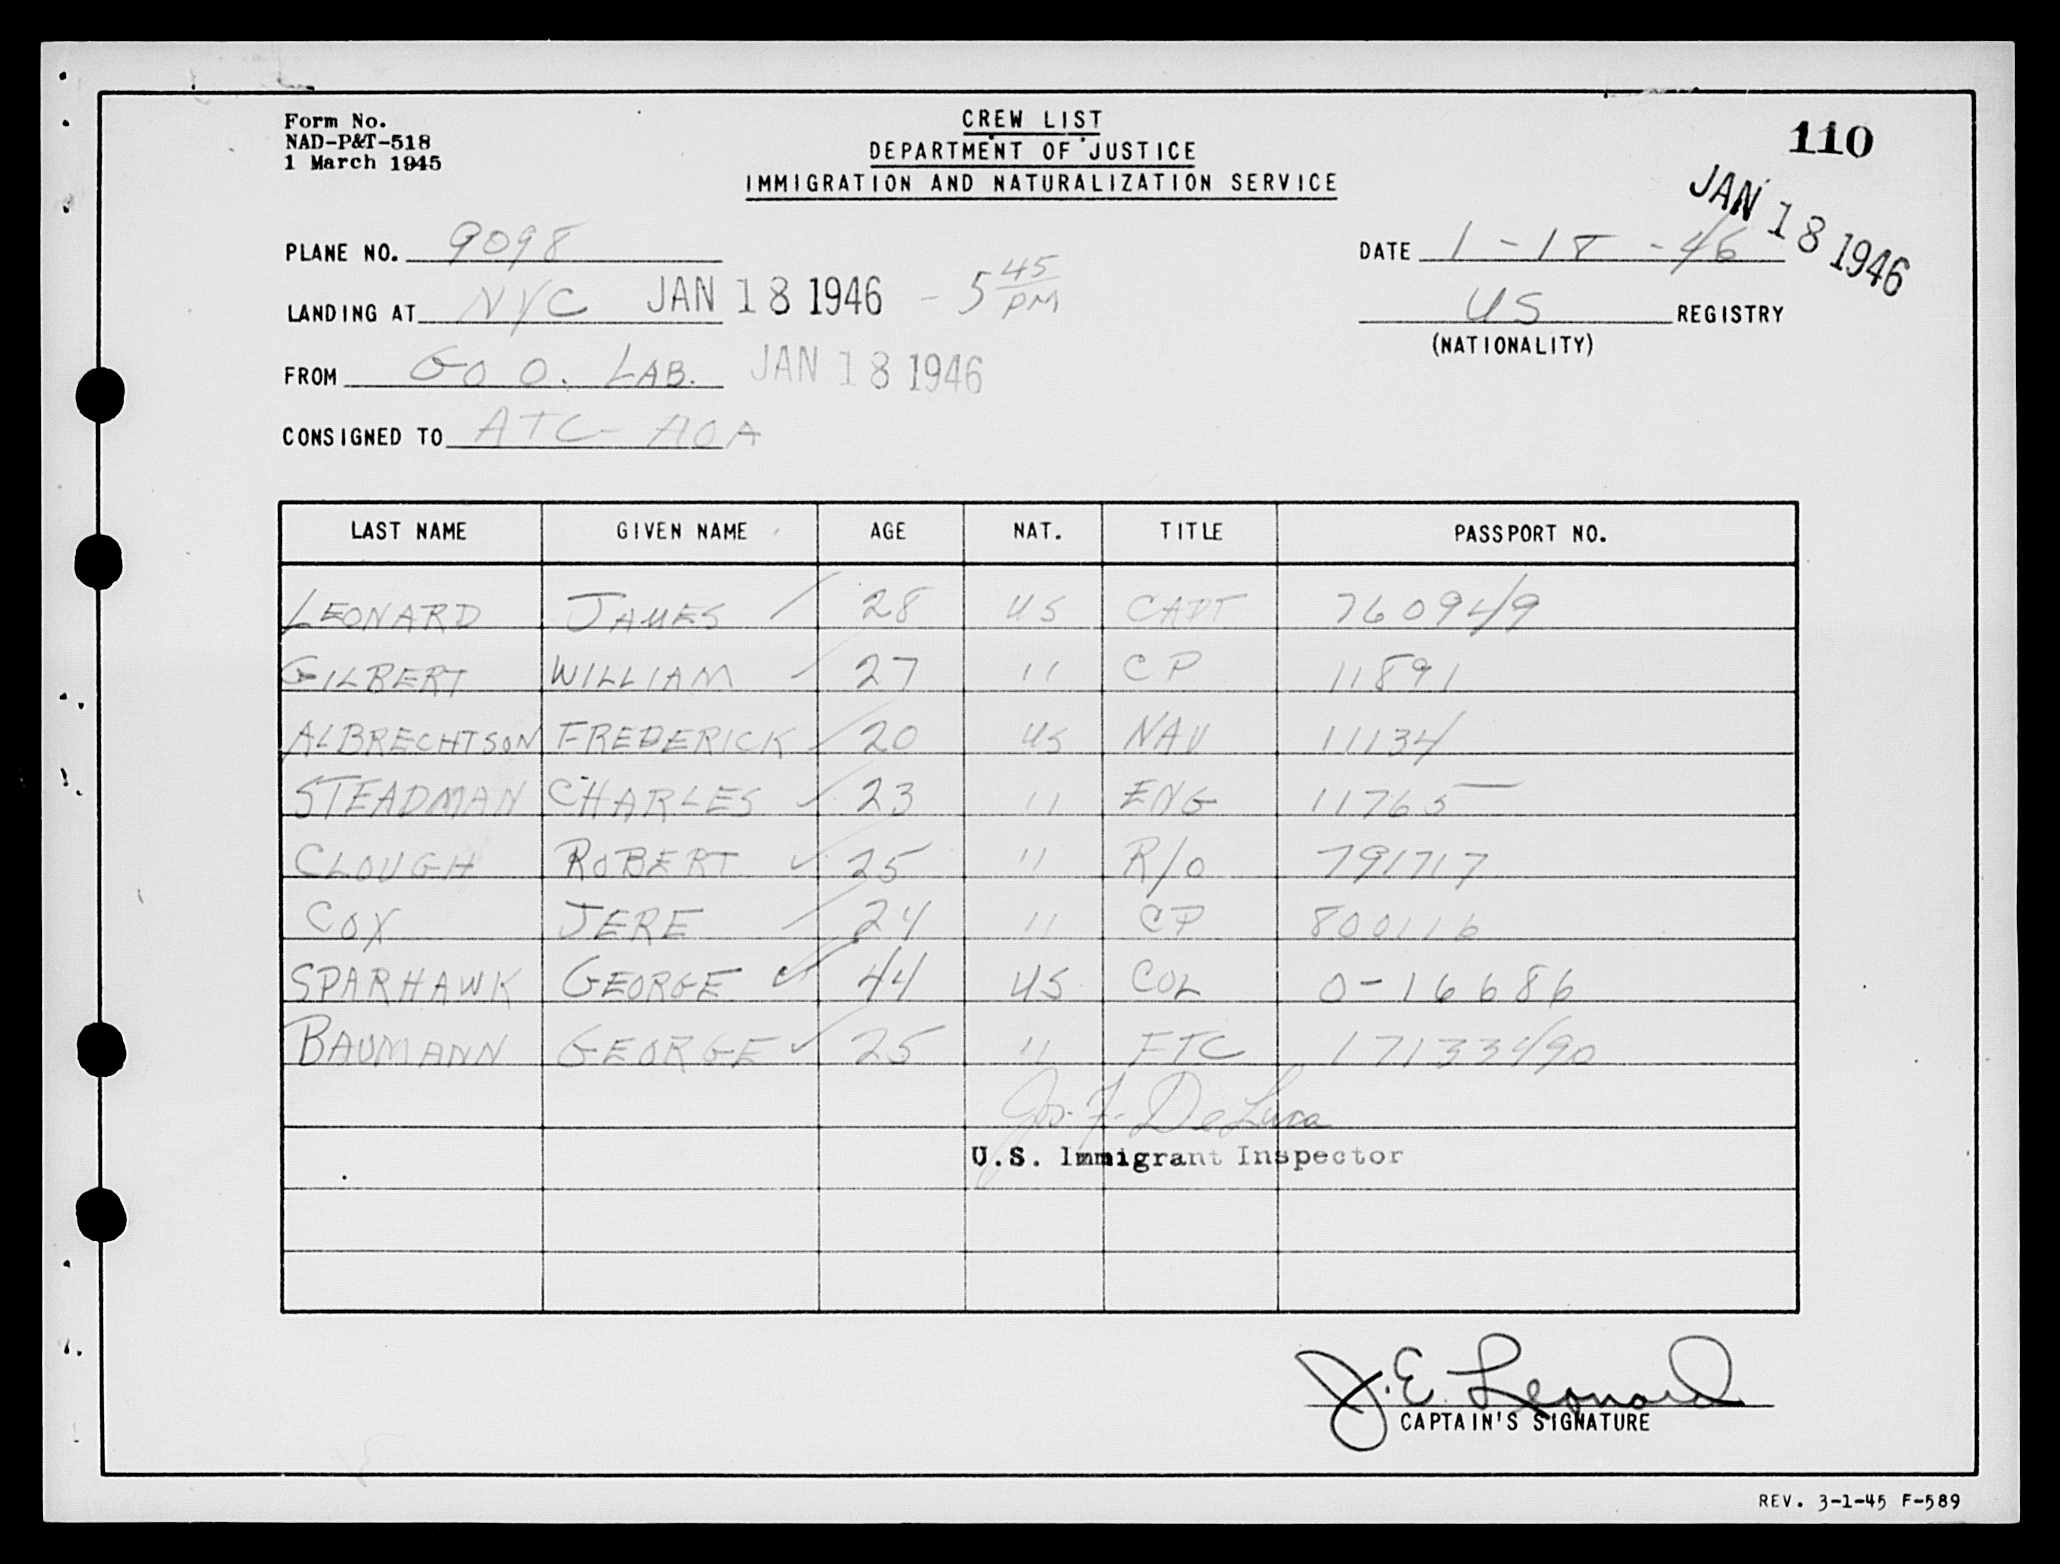 Form No.
NAD-P&T-518
1 March 1945
CREW LIST
DEPARTMENT OF JUSTICE
IMMIGRATION AND NATURALIZATION SERVICE
110
JAN 18 1946
PLANE NO. 9098
DATE 1-18-46
LANDING AT NYC JAN 18 1946 - 5 45 PM
US REGISTRY
(NATIONALITY)
FROM GOO. LAB. JAN 18 1946
CONSIGNED TO ATC- AOA
LAST NAME GIVEN NAME AGE NAT. TITLE PASSPORT NO.
LEONARD JAMES 28 US CAPT 760949
GILBERT WILLIAM 27 " CP 11891
ALBRECHTSON FREDERICK 20 US NAV 11134
STEADMAN CHARLES 23 " ENG 11765
CLOUGH ROBERT 25 " R/O 791717
COX JERE 24 " CP 800116
SPARHAWK GEORGE 44 US COL 0-16686
BAUMANN GEORGE 25 " FTC 17133490
Jos. F. DeLuca
U.S. Immigrant Inspector
J.E. Leonard
CAPTAIN'S SIGNATURE
REV. 3-1-45 F-589